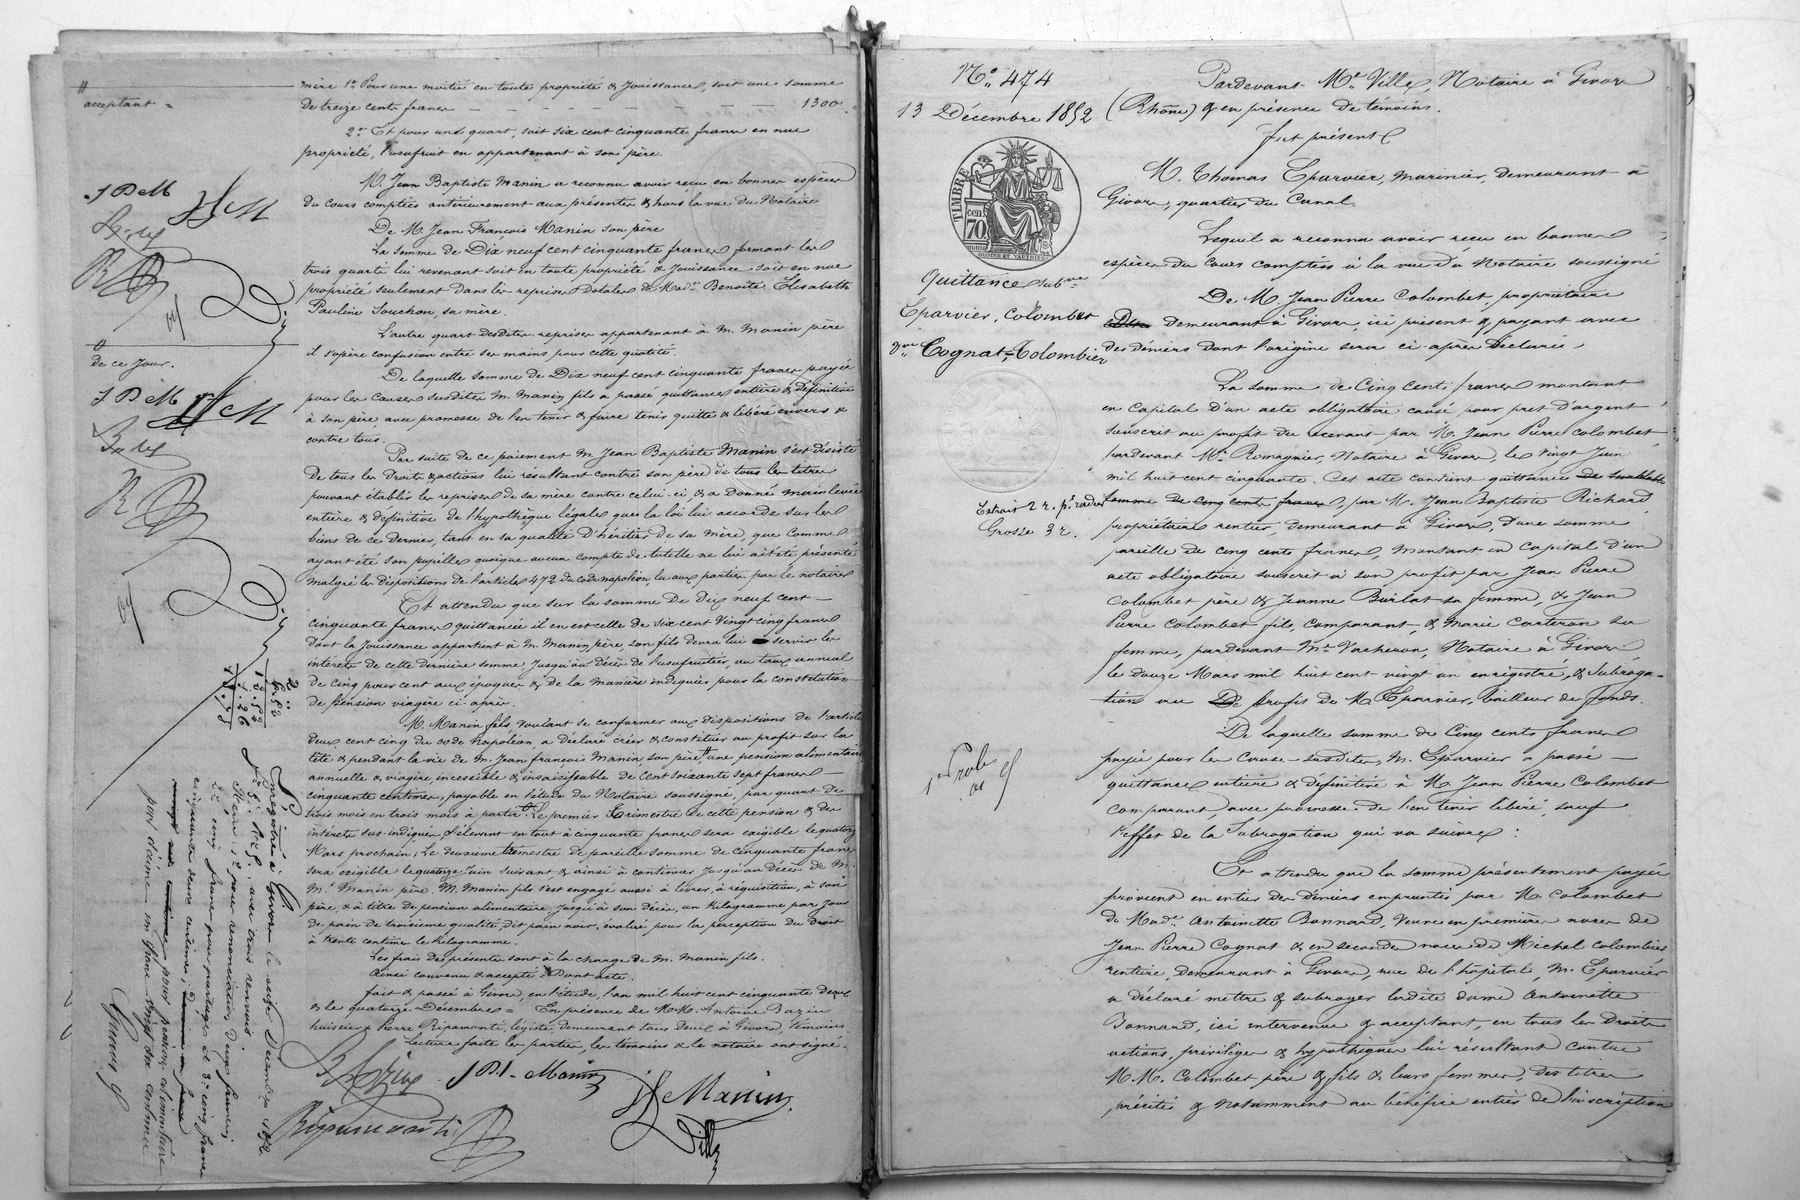 mère 1º Pour une moitié en toute propriété & jouissance, soit une somme
De treize cents francs — — — — — — — 1300 "
2º Et pour un quart, soit six cent cinquante francs en nue
propriété, l'usufruit en appartenant à son père.
M. Jean Baptiste Manin a reconnu avoir reçu en bonnes espèces
du cours comptées antérieurement aux présentes & hors la vue du Notaire
De M. Jean François Manin son père
La somme de Dix neuf cent cinquante francs formant les
trois quarts lui revenant soit en toute propriété & jouissance soit en nue
propriété seulement dans les reprises Dotales de Made. Benoite Elisabeth
Pauline Souchon, sa mère.
L'autre quart desdites reprises appartenant à M. Manin père
il s'opère confusion entre ses mains pour cette quotité.
De laquelle somme de Dix neuf cent cinquante francs payée
pour les causes susdites M. Manin fils a passé quittance entière & définitive
à son père, avec promesse de l'en tenir & faire tenir quitte & libéré envers &
contre tous.
Par suite de ce paiement M. Jean Baptiste Manin s'est désisté
De tous les Droits & actions lui résultant contre son père de tous les titres
pouvant établir les reprises de sa mère contre celui-ci, & a donné mainlevée
entière & définitive de l'hypothèque légale que la loi lui accorde sur les
biens de ce dernier, tant en sa qualité d'héritier de sa mère, que comme
ayant été son pupille quoique aucun compte de tutelle ne lui ait été présenté
malgré les dispositions de l'article 472 du code napoléon, lu aux parties par le notaire
Et attendu que sur la somme De Dix neuf cent
cinquante francs quittancée il en est celle de six cent vingt cinq francs
Dont la jouissance appartient à M. Manin père, son fils devra lui servir les
intérêts de cette dernière somme, jusqu'au décès de l'usufruitier, au taux annuel
de cinq pour cent aux époques & de la manière indiquées pour la constitution
de pension viagère ci-après.
M. Manin fils voulant se conformer aux dispositions de l'article
deux cent cinq du code Napoléon, a déclaré créer & constituer au profit sur la
tête & pendant la vie de M. Jean François Manin, son père, " une pension alimentaire
annuelle & viagère incessible & insaisissable de cent soixante sept francs
cinquante centimes, payable en l'étude du Notaire soussigné, par quart de
trois mois en trois mois à partir º. Le premier trimestre de cette pension & des
intérêts sus-indiqués s'élevant en tout à cinquante francs sera exigible le quatorze
Mars prochain; Le deuxième trimestre de pareille somme de cinquante francs
sera exigible le quatorze Juin suivant & ainsi à continuer jusqu'au décès de M.
M. Manin père. M. Manin fils s'est engagé aussi à livrer, à réquisition, à son
père, & à titre de pension alimentaire jusqu'à son décès, un kilogramme par jour
de pain de troisième qualité, dit pain noir, évalué pour la perception du Droit
à trente centimes le kilogramme.
Les frais des présentes sont à la charge de M. Manin fils.
Ainsi convenu & accepté. Dont acte.
fait & passé à Givors, en l'étude, l'an mil huit cent cinquante deux
& le quatorze Décembre = En présence de MM. Antoine Bazin
huissier & Pierre Ripamonti, légiste, demeurant tous deux à Givors, témoins.
Lecture faite les parties, les témoins & le notaire ont signé.
Bazin J B. Manin J F Manin
Ripamonti Ville
"
acceptant =
J B M JF M
R
0
de ce jour.
J B M JF M
R
Enregistré à Givors le seize Décembre 1852
avec trois renvois.
Reçu, 1º pour renonciation deux francs;
2º cinq francs pour partage et 3º cinq francs
cinquante deux centimes,
pour pension alimentaire
Nº 474
13 Décembre 1852
TIMBRE
cen
70
Quittance sub.
Eparvier, Colombet
Cognat-Colombier
Extrait 2 r. pr. radier
Grosse 3 r.
Pardevant Me Ville, Notaire à Givors
(Rhône) & en présence de témoins.
fut présent
M. Thomas Eparvier, marinier, demeurant à
Givors, quartier du Canal.
Lequel a reconnu avoir reçu en bonnes
espèces du cours comptées à la vue du Notaire soussigné
De M. Jean Pierre Colombet, propriétaire
demeurant à Givors, ici présent & payant avec
des deniers dont l'origine sera ci-après déclarée.
La somme de Cinq cents francs montant
en capital d'un acte obligatoire causé pour prêt d'argent
souscrit au profit du recevant par M. Jean Pierre Colombet,
pardevant Me Romagnier, Notaire à Givors, le vingt Juin
mil huit cent cinquante. Cet acte contient quittance de semblable
somme de cinq cents francs, par M. Jean Baptiste Richard,
propriétaire rentier, demeurant à Givors, d'une somme
pareille de cinq cents francs, montant en capital d'un
acte obligatoire souscrit à son profit par Jean Pierre
Colombet père & Jeanne Burlat sa femme, & Jean
Pierre Colombet fils, comparant, & Marie Carteron sa
femme, pardevant Me Vacheron, Notaire à Givors
le douze Mars mil huit cent vingt un enregistré, & subroga-
tion au profit de M. Eparvier, bailleur de fonds.
De laquelle somme de Cinq cents francs
payée pour les causes susdites, M. Eparvier a passé
quittance entière & définitive à M. Jean Pierre Colombet
comparant, avec promesse de l'en tenir libéré, sauf
l'effet de la Subrogation qui va suivre :
Et attendu que la somme présentement payée
provient en entier des deniers empruntés par M. Colombet
de Made. Antoinette Bonnard, Veuve en premières noces de
Jean Pierre Cognat & en secondes noces de Michel Colombier
rentière, demeurant à Givors, rue de l'hôpital, M. Eparvier
a déclaré mettre & subroger ladite dame Antoinette
Bonnard, ici intervenue & acceptant, en tous les droits
actions, privilèges & hypothèques lui résultant contre
M.M. Colombet père & fils & leurs femmes, des titres
précités & notamment au bénéfice entier de l'inscription